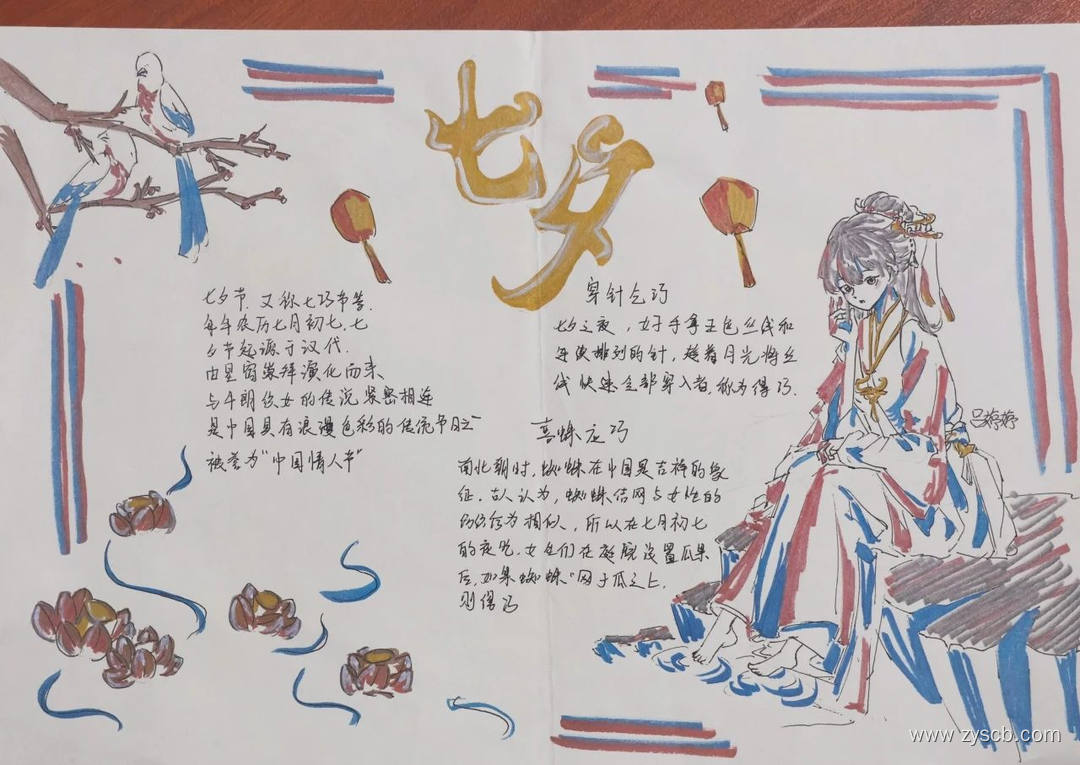 七夕
七夕节,又称七巧节等.
每年农历七月初七,七
夕节起源于汉代.
由星宿崇拜演化而来
与牛郎织女的传说紧密相连
是中国具有浪漫色彩的传统节日之一
被誉为"中国情人节"
穿针乞巧
七夕之夜,女子手拿五色丝线和
连续排列的针,趁着月光将丝
线快速全部穿入者,称为得巧.
喜蛛应巧
南北朝时,蜘蛛在中国是吉祥的象
征.古人认为,蜘蛛结网与女性的
纺织行为相似,所以在七月初七
的夜晚,女生们在庭院设置瓜果
后,如果蜘蛛网于瓜之上,
则得巧
吕婷婷
www.zyscb.com